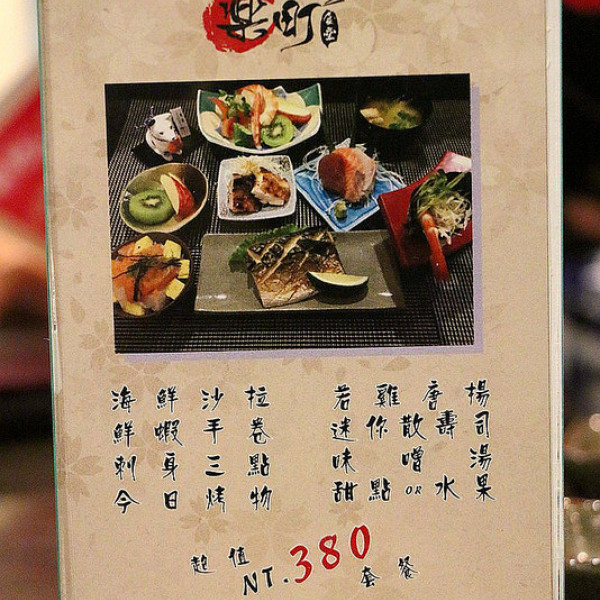 楽町
海鮮沙拉 若雞唐揚
鮮蝦手卷 迷你散壽司
刺身三點 味噌湯
今日烤物 甜點OR水果
超值 NT.380 套餐